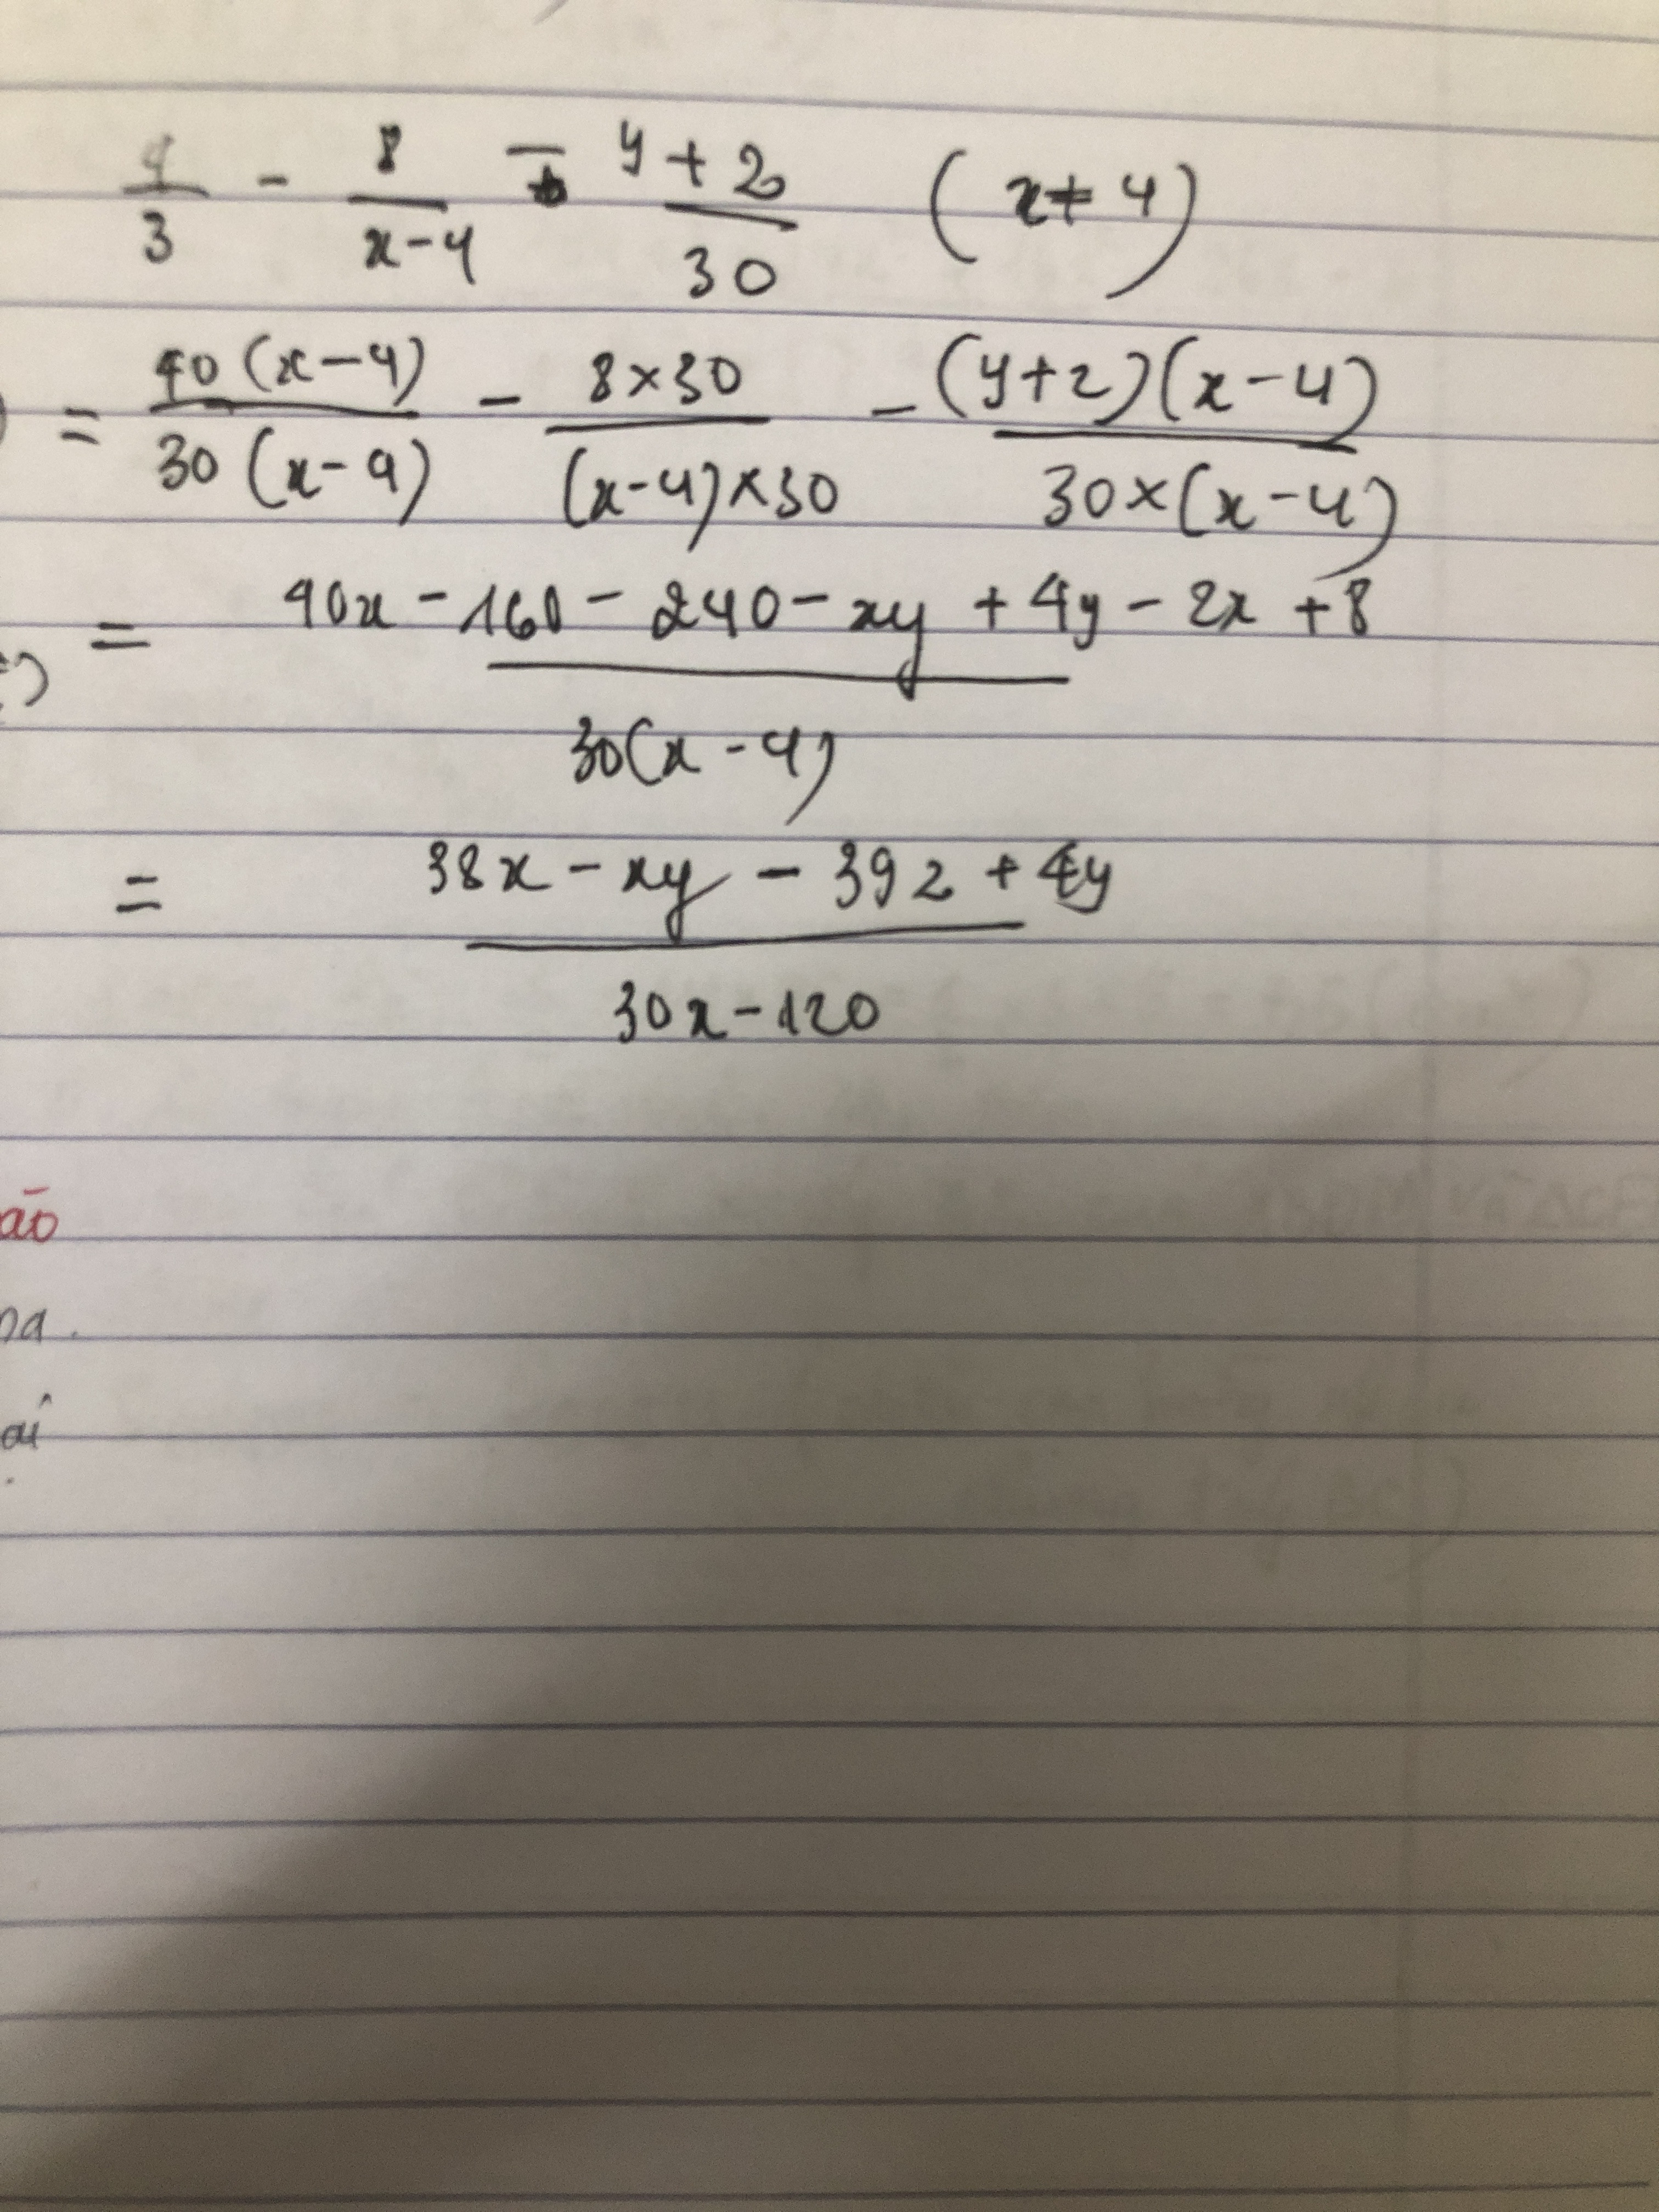 4/3 - 8/(x-4) - (y+2)/30 (x ≠ 4)
= 40(x-4)/30(x-4) - 8×30/(x-4)×30 - (y+2)(x-4)/30×(x-4)
= (40x - 160 - 240 - xy + 4y - 2x + 8)/30(x-4)
= (38x - xy - 392 + 4y)/(30x - 120)